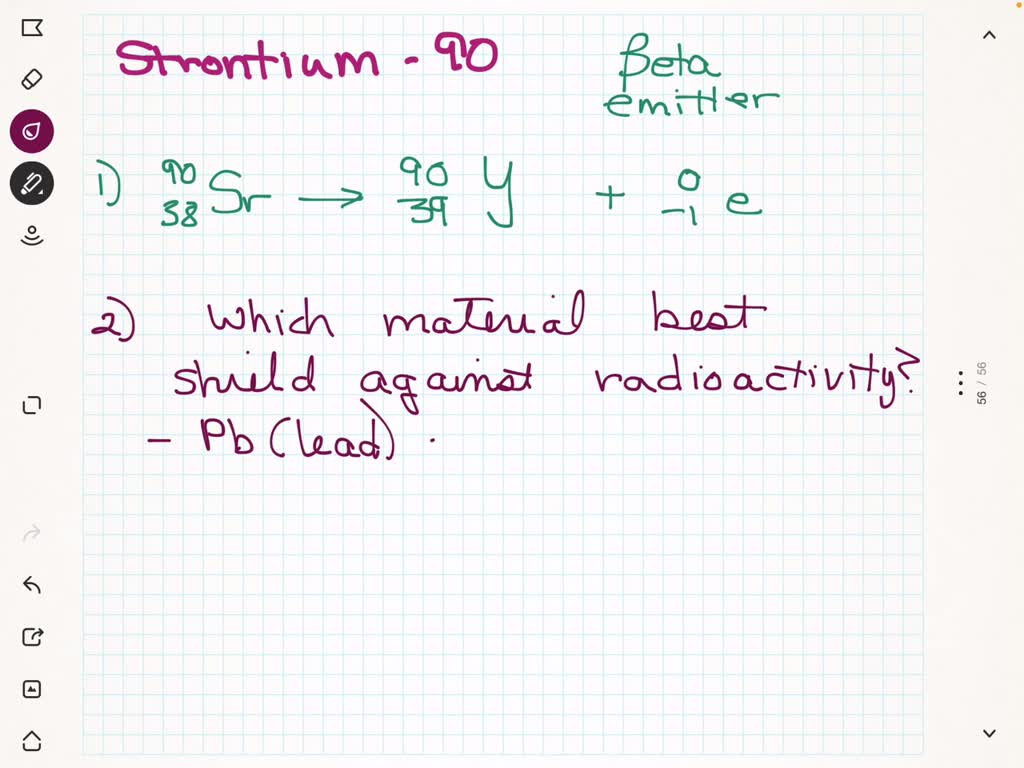 Strontium - 90
Beta
emitter
1) ⁹⁰₃₈Sr → ⁹⁰₃₉Y + ⁰₋₁e
2) which material best
shield against radioactivity?
- Pb (lead) .
56 / 56